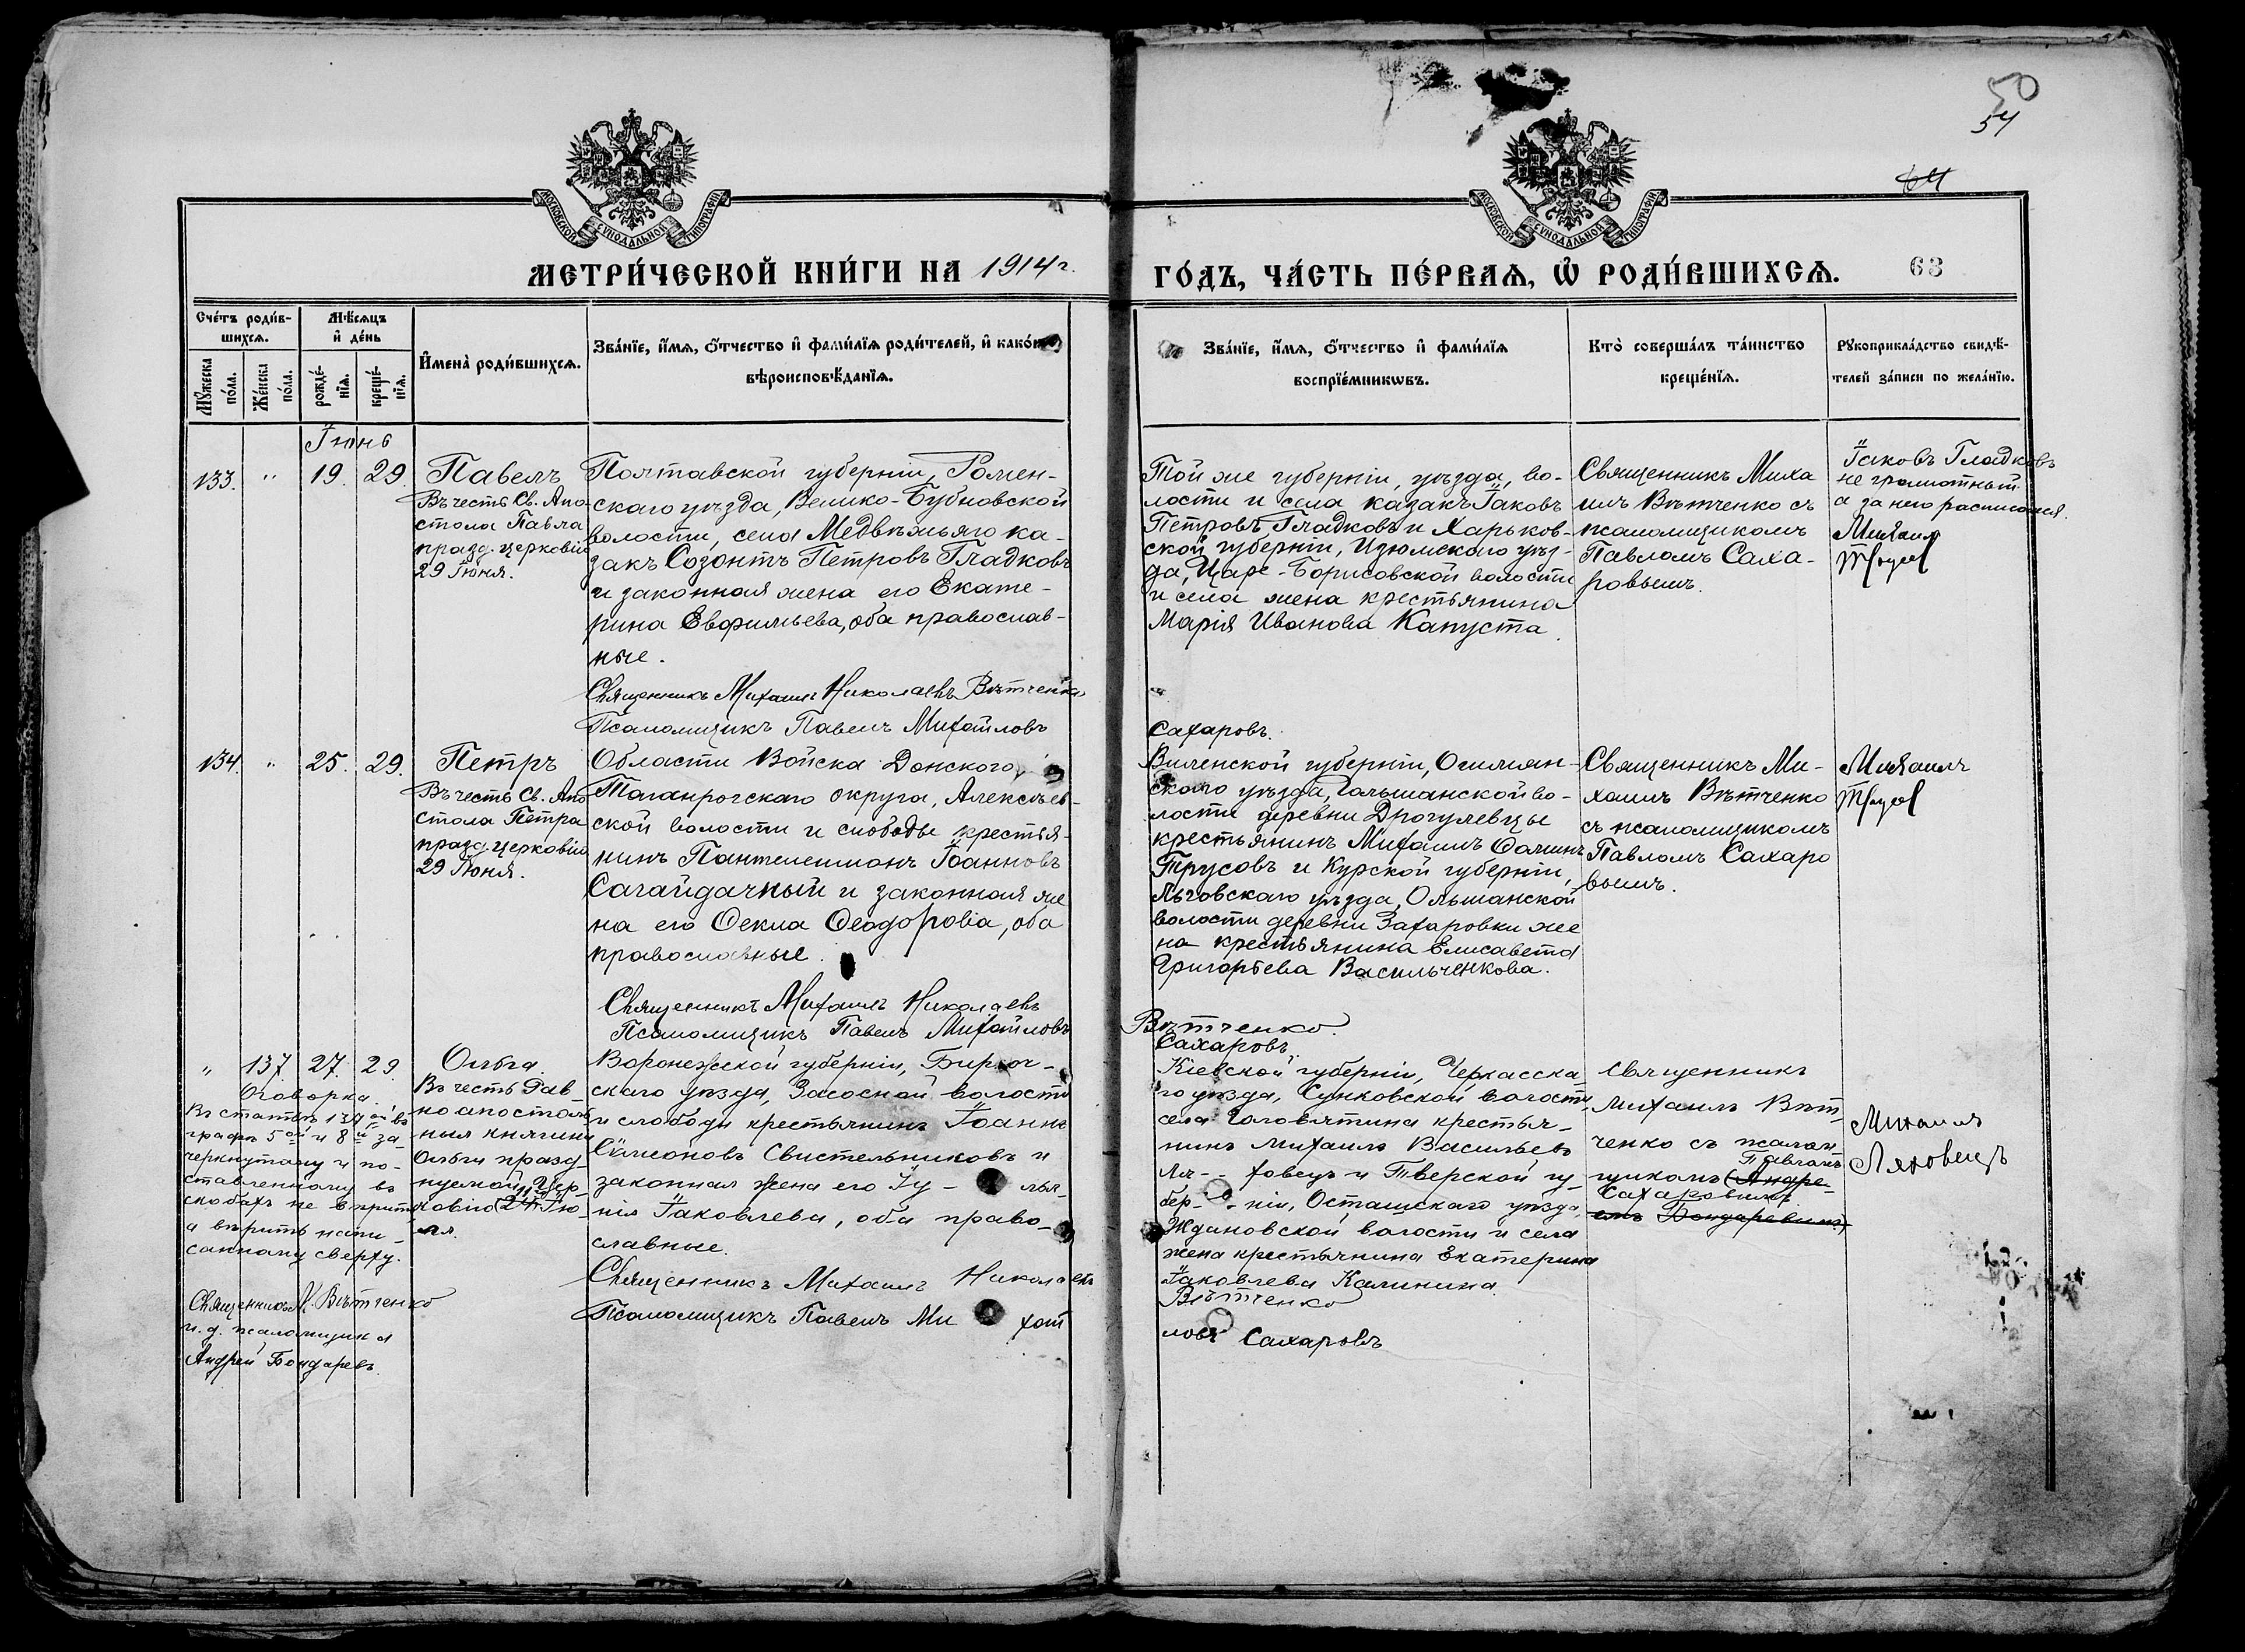 50
54
64
МОСКОВСКОЙ СѴНОДАЛЬНОЙ ТИПОГРАФІИ
МОСКОВСКОЙ СѴНОДАЛЬНОЙ ТИПОГРАФІИ
МЕТРИ́ЧЕСКОЙ КНИ́ГИ НА 1914 г.
ГО́ДЪ, ЧА́СТЬ ПЕ́РВАѦ, Ѡ҆ РОДИ́ВШИХСѦ.
63
Сче́тъ роди́в-
шихсѧ.
Мꙋ́жеска по́ла.
Же́нска по́ла.
Мѣ́сѧцъ
и҆ де́нь
рожде́-
нїѧ.
креще́-
нїѧ.
И҆мена̀ роди́вшихсѧ.
Зва́нїе, и҆́мѧ, ѻ҆́тчество и҆ фами́лїѧ роди́телей, и҆ како́гѡ
вѣроисповѣ́данїѧ.
Зва́нїе, и҆́мѧ, ѻ҆́тчество и҆ фами́лїѧ
воспрїе́мникѡвъ.
Кто̀ соверша́лъ та́инство
креще́нїѧ.
Рꙋкоприкла́дство свидѣ́-
телей за́писи по жела́нїю.
Іюнь
133. " 19. 29.
Павелъ
Въ честь Св. Апо-
стола Павла
празд. церковію
29 Іюня.
Полтавской губерніи, Ромен-
скаго уѣзда, Велико-Бубновской
волости, села Медвѣжьяго ка-
закъ Созонтъ Петровъ Гладковъ
и законная жена его Екате-
рина Евфимьева, оба православ-
ные.
Священникъ Михаилъ Николаевъ Вѣтченко
Псаломщикъ Павелъ Михайловъ
Той же губерніи, уѣзда, во-
лости и села казакъ Іаковъ
Петровъ Гладковъ и Харьков-
ской губерніи, Изюмскаго уѣз-
да, Царе-Борисовской волости
и села жена крестьянина
Марія Иванова Капуста.
Сахаровъ.
Священникъ Миха
илъ Вѣтченко съ
псаломщикомъ
Павломъ Саха-
ровымъ.
Іаковъ Гладковъ
не грамотный
а за него расписался.
Михаилъ
Трусов
134. " 25. 29.
Петръ
Въ честь Св. Апо
стола Петра
празд. церковію
29 Іюня.
Области Войска Донского,
Таганрогскаго округа, Алексѣев-
ской волости и слободы крестья-
нинъ Пантелеимонъ Іоанновъ
Сагайдачный и законная же
на его Ѳекла Ѳеодорова, оба
православные.
Священникъ Михаилъ Николаевъ
Псаломщикъ Павелъ Михайловъ
Виленской губерніи, Ошмян-
скаго уѣзда, Гольшанской во-
лости деревни Дрогулевцы
крестьянинъ Михаилъ Ѳоминъ
Трусовъ и Курской губерніи,
Льговскаго уѣзда, Ольшанской
волости деревни Захаровки же
на крестьянина Елисавета
Григорьева Васильченкова.
Вѣтченко.
Сахаровъ.
Священникъ Ми-
хаилъ Вѣтченко
съ псаломщикомъ
Павломъ Сахаро
вымъ.
Михаилъ
Трусов
" 137. 27. 29.
Оговорка.
Въ статьѣ 137ой въ
графѣ 5ой и 8й за
черкнутому и по-
ставленному въ
скобахъ не вѣрить
а вѣрить напи-
санному сверху.
Священникъ М. Вѣтченко
и. д. псаломщика
Андрей Бондаревъ.
Ольга.
Въ честь Рав
ноапостоль
ныя княгини
Ольги празд-
нуемой Цер-
11
ковію (24) Ію-
ля.
Воронежской губерніи, Бирюч-
скаго уѣзда, Засосной волости
и слободы крестьянинъ Іоаннъ
Сѵмеоновъ Свистельниковъ и
законная жена его Іу- лья-
нія Іаковлева, оба право-
славные.
Священникъ Михаилъ Николаевъ
Псаломщикъ Павелъ Ми хай
Кіевской губерніи, Черкасска-
го уѣзда, Сунковской волости
села Головятина крестья-
нинъ Михаилъ Васильевъ
Ля- ховецъ и Тверской гу-
бер- ніи, Осташскаго уѣзда,
Ждановской волости и села
жена крестьянина Екатерина
Іаковлева Калинина
Вѣтченко
ловъ Сахаровъ
священникъ
Михаилъ Вѣт-
ченко съ псалом
Павломъ
щикомъ (Андре-
Сахаровымъ
емъ Бондаревымъ)
Михаилъ
Ляховецъ